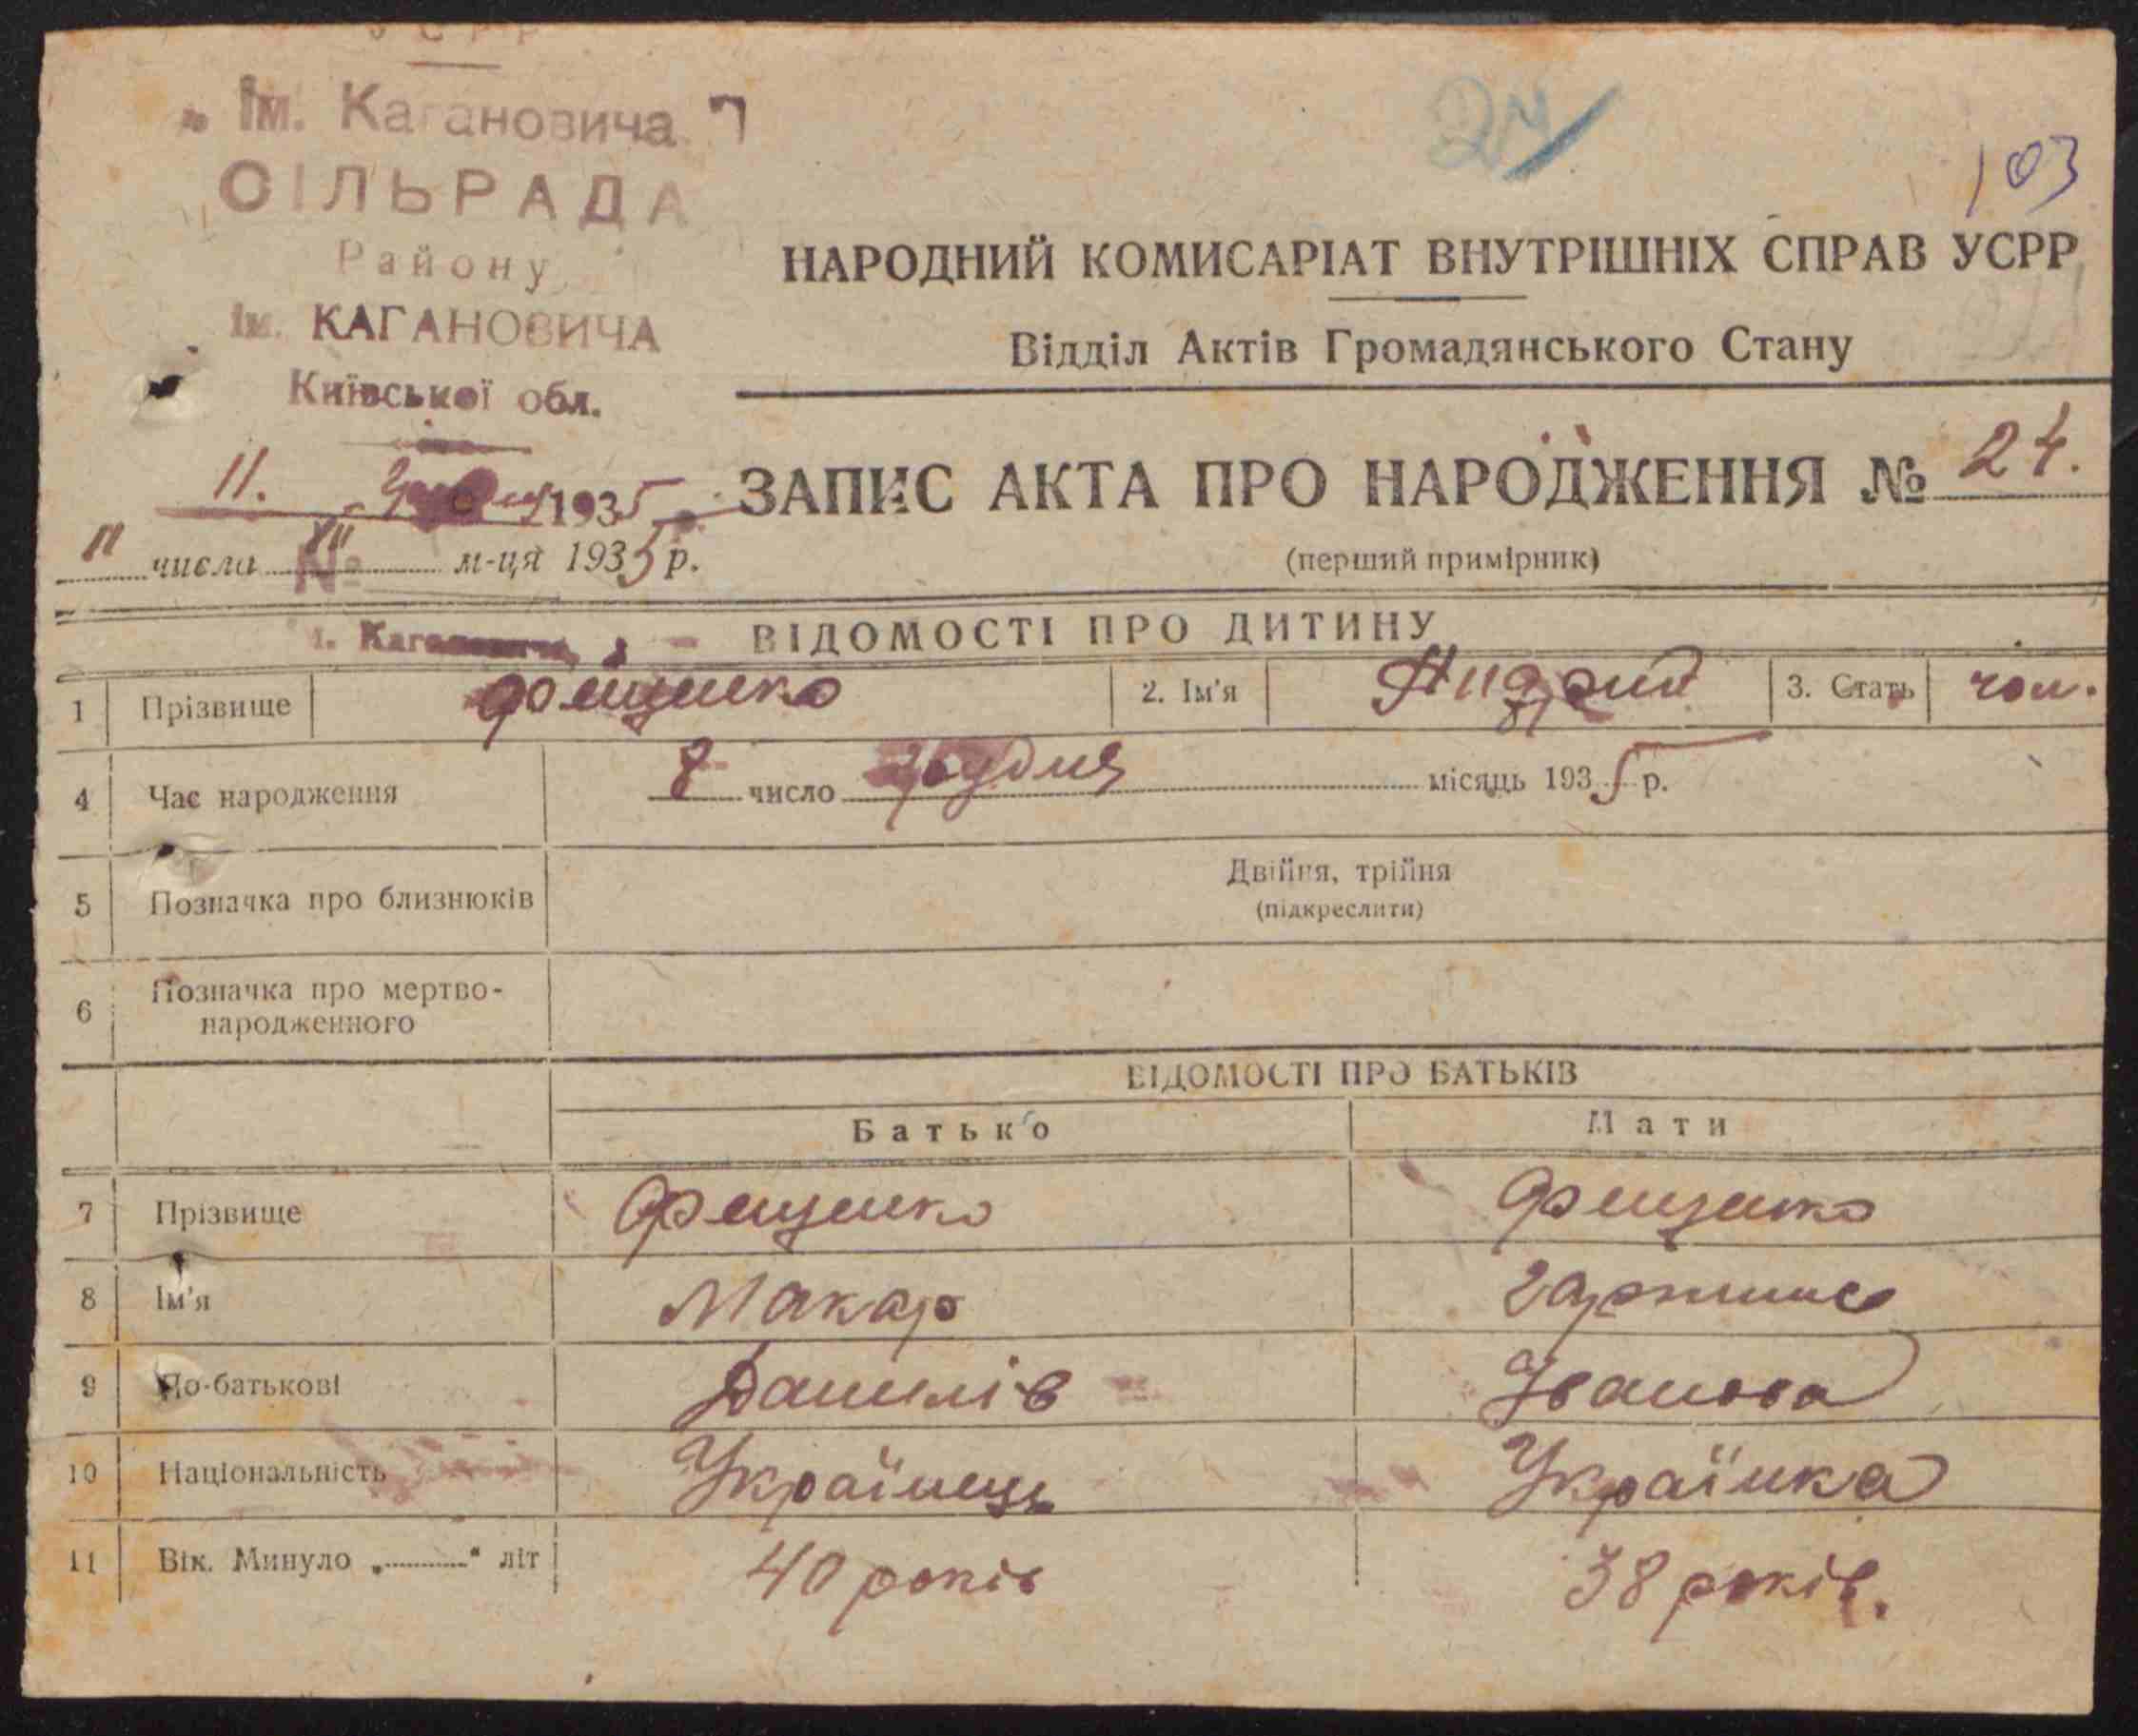 УСРР
„Ім. Кагановича"
СІЛЬРАДА
Району
Ім. КАГАНОВИЧА
Київської обл.
11. 1935
№
І.
24
103
НАРОДНИЙ КОМИСАРІАТ ВНУТРІШНІХ СПРАВ УСРР
Відділ Актів Громадянського Стану
ЗАПИС АКТА ПРО НАРОДЖЕННЯ № 24.
(перший примірник)
11 числа XII м-ця 1935 р.
ВІДОМОСТІ ПРО ДИТИНУ
1 Прізвище Фещенко 2. Ім'я Андрій 3. Стать чол.
4 Час народження 8 число грудня місяць 1935 р.
5 Позначка про близнюків Двійня, трійня
(підкреслити)
6 Позначка про мертво-
народженного
ВІДОМОСТІ ПРО БАТЬКІВ
Батько Мати
7 Прізвище Фещенко Фещенко
8 Ім'я Макар
9 По-батькові Данилів Іванова
10 Національність Українець Українка
11 Вік. Минуло „ “ літ 40 років 38 років.